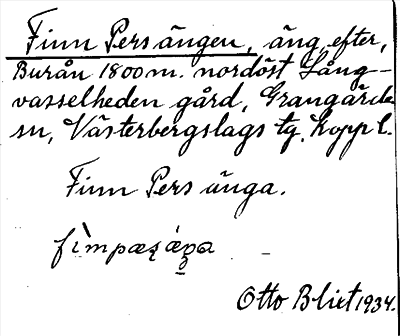 Finn Persängen, äng efter,
Burån 1800 m. nordöst Lång-
vasselheden gård, Grangärde
sn, Västerbergslags tg, Kopp l.
Finn Pers änga.
Otto Blixt 1934.